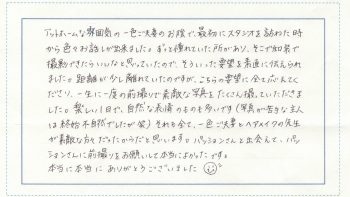 アットホームな雰囲気の一色ご夫妻のお陰で、最初にスタジオを訪れた時
から色々お話しが出来ました。ずっと憧れていた所があり、そこで和装で
撮影できたらいいなと思っていたので、そういった要望を素直に伝えられ
ました。距離が少し離れていたのですが、こちらの要望に全て応えてく
ださり、一生に一度の前撮りで素敵な写真をたくさん撮っていただきま
した。楽しい1日で、自然な表情のものが多いです(写真が苦手な主人
は終始不自然でしたが笑)それも全て、一色ご夫妻とヘアメイクの先生
が素敵な方々だったからだと思います。パッションさんと出会えて、パッ
ションさんに前撮りをお願いして本当によかったです。
本当に本当にありがとうございました